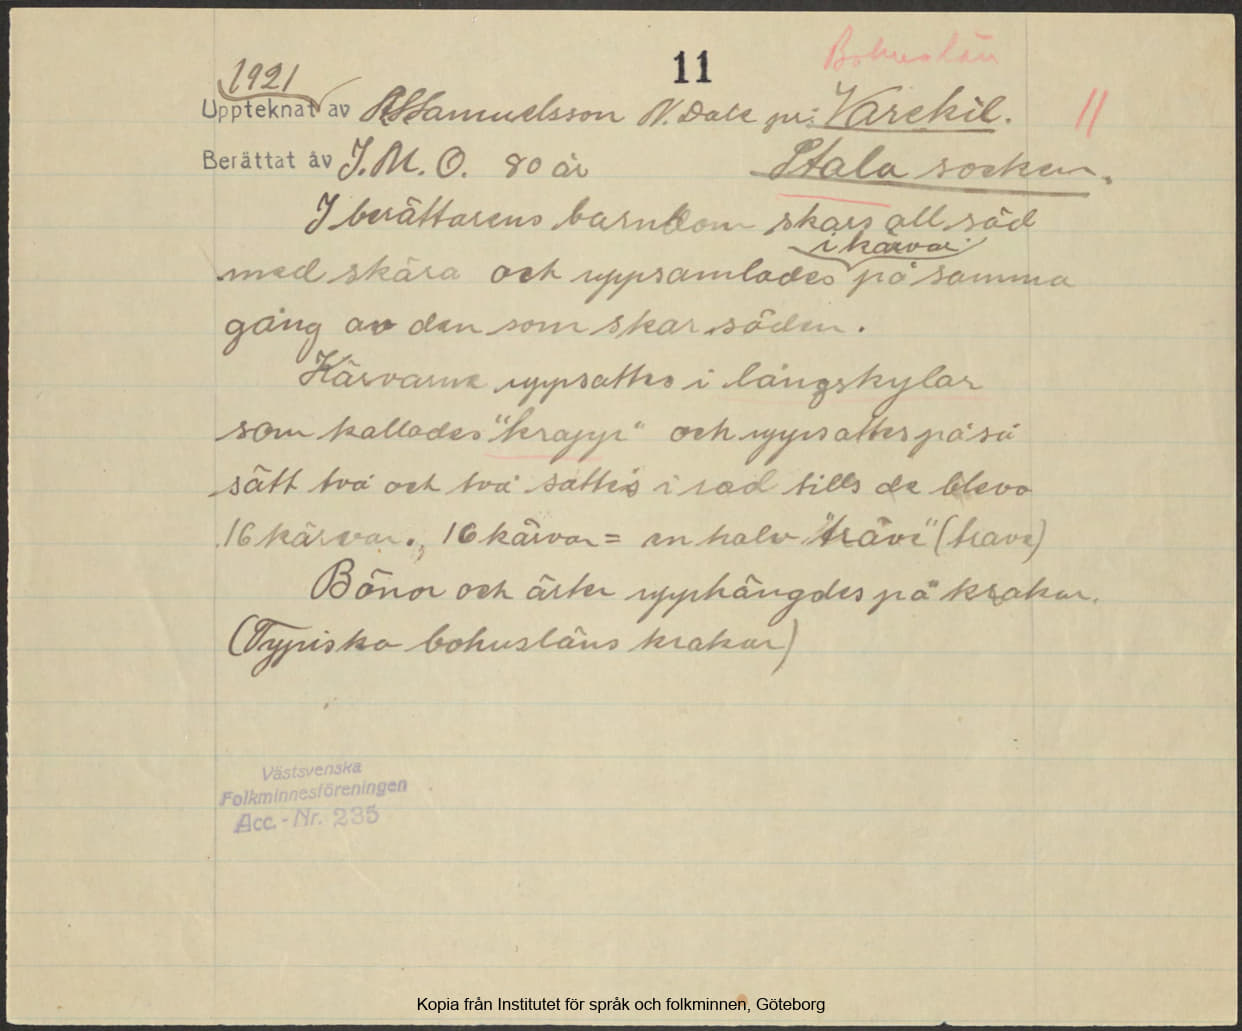 Bohuslän
11
1921
Uppteknat av Samuelsson N. Dale pr: Varekil. 11
Berättat av J. M. O. 80 år Stala socken.
I berättarens barndom skars all säd
i kärvar
med skära och uppsamlades på samma
gång av den som skar säden.
Kärvarne uppsattes i långskylar
som kallades "krapp" och uppsattes på så
sätt två och två sattes i rad tills de blevo
16 kärvar., 16 kärvar = en halv "träve" (trave)
Bönor och ärter upphängdes på krakar.
(Typiska bohusläns krakar)
Västsvenska
Folkminnesföreningen
Acc.-Nr. 235
Kopia från Institutet för språk och folkminnen, Göteborg